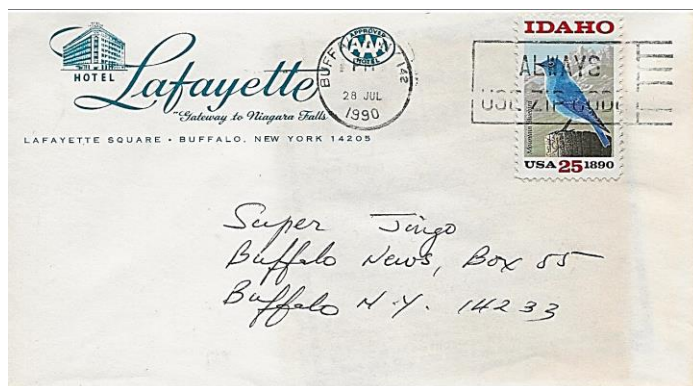 HOTEL
Lafayette
Gateway to Niagara Falls
LAFAYETTE SQUARE • BUFFALO, NEW YORK 14205
APPROVED
AAA
HOTEL
BUFFALO NY 142
PM
28 JUL
1990
ALWAYS
USE ZIP CODE
IDAHO
Mountain Bluebird
USA 25 1890
Super Jingo
Buffalo News, Box 55
Buffalo N.Y. 14233